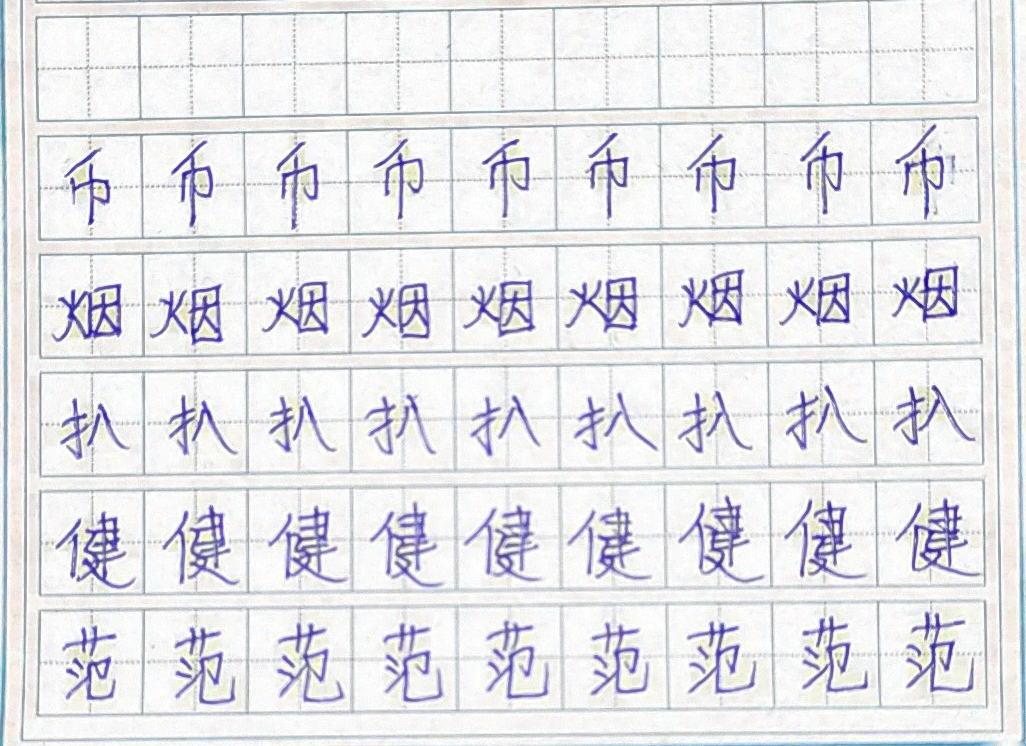 币币币币币币币币币
烟烟烟烟烟烟烟烟烟
扒扒扒扒扒扒扒扒扒
健健健健健健健健健
范范范范范范范范范